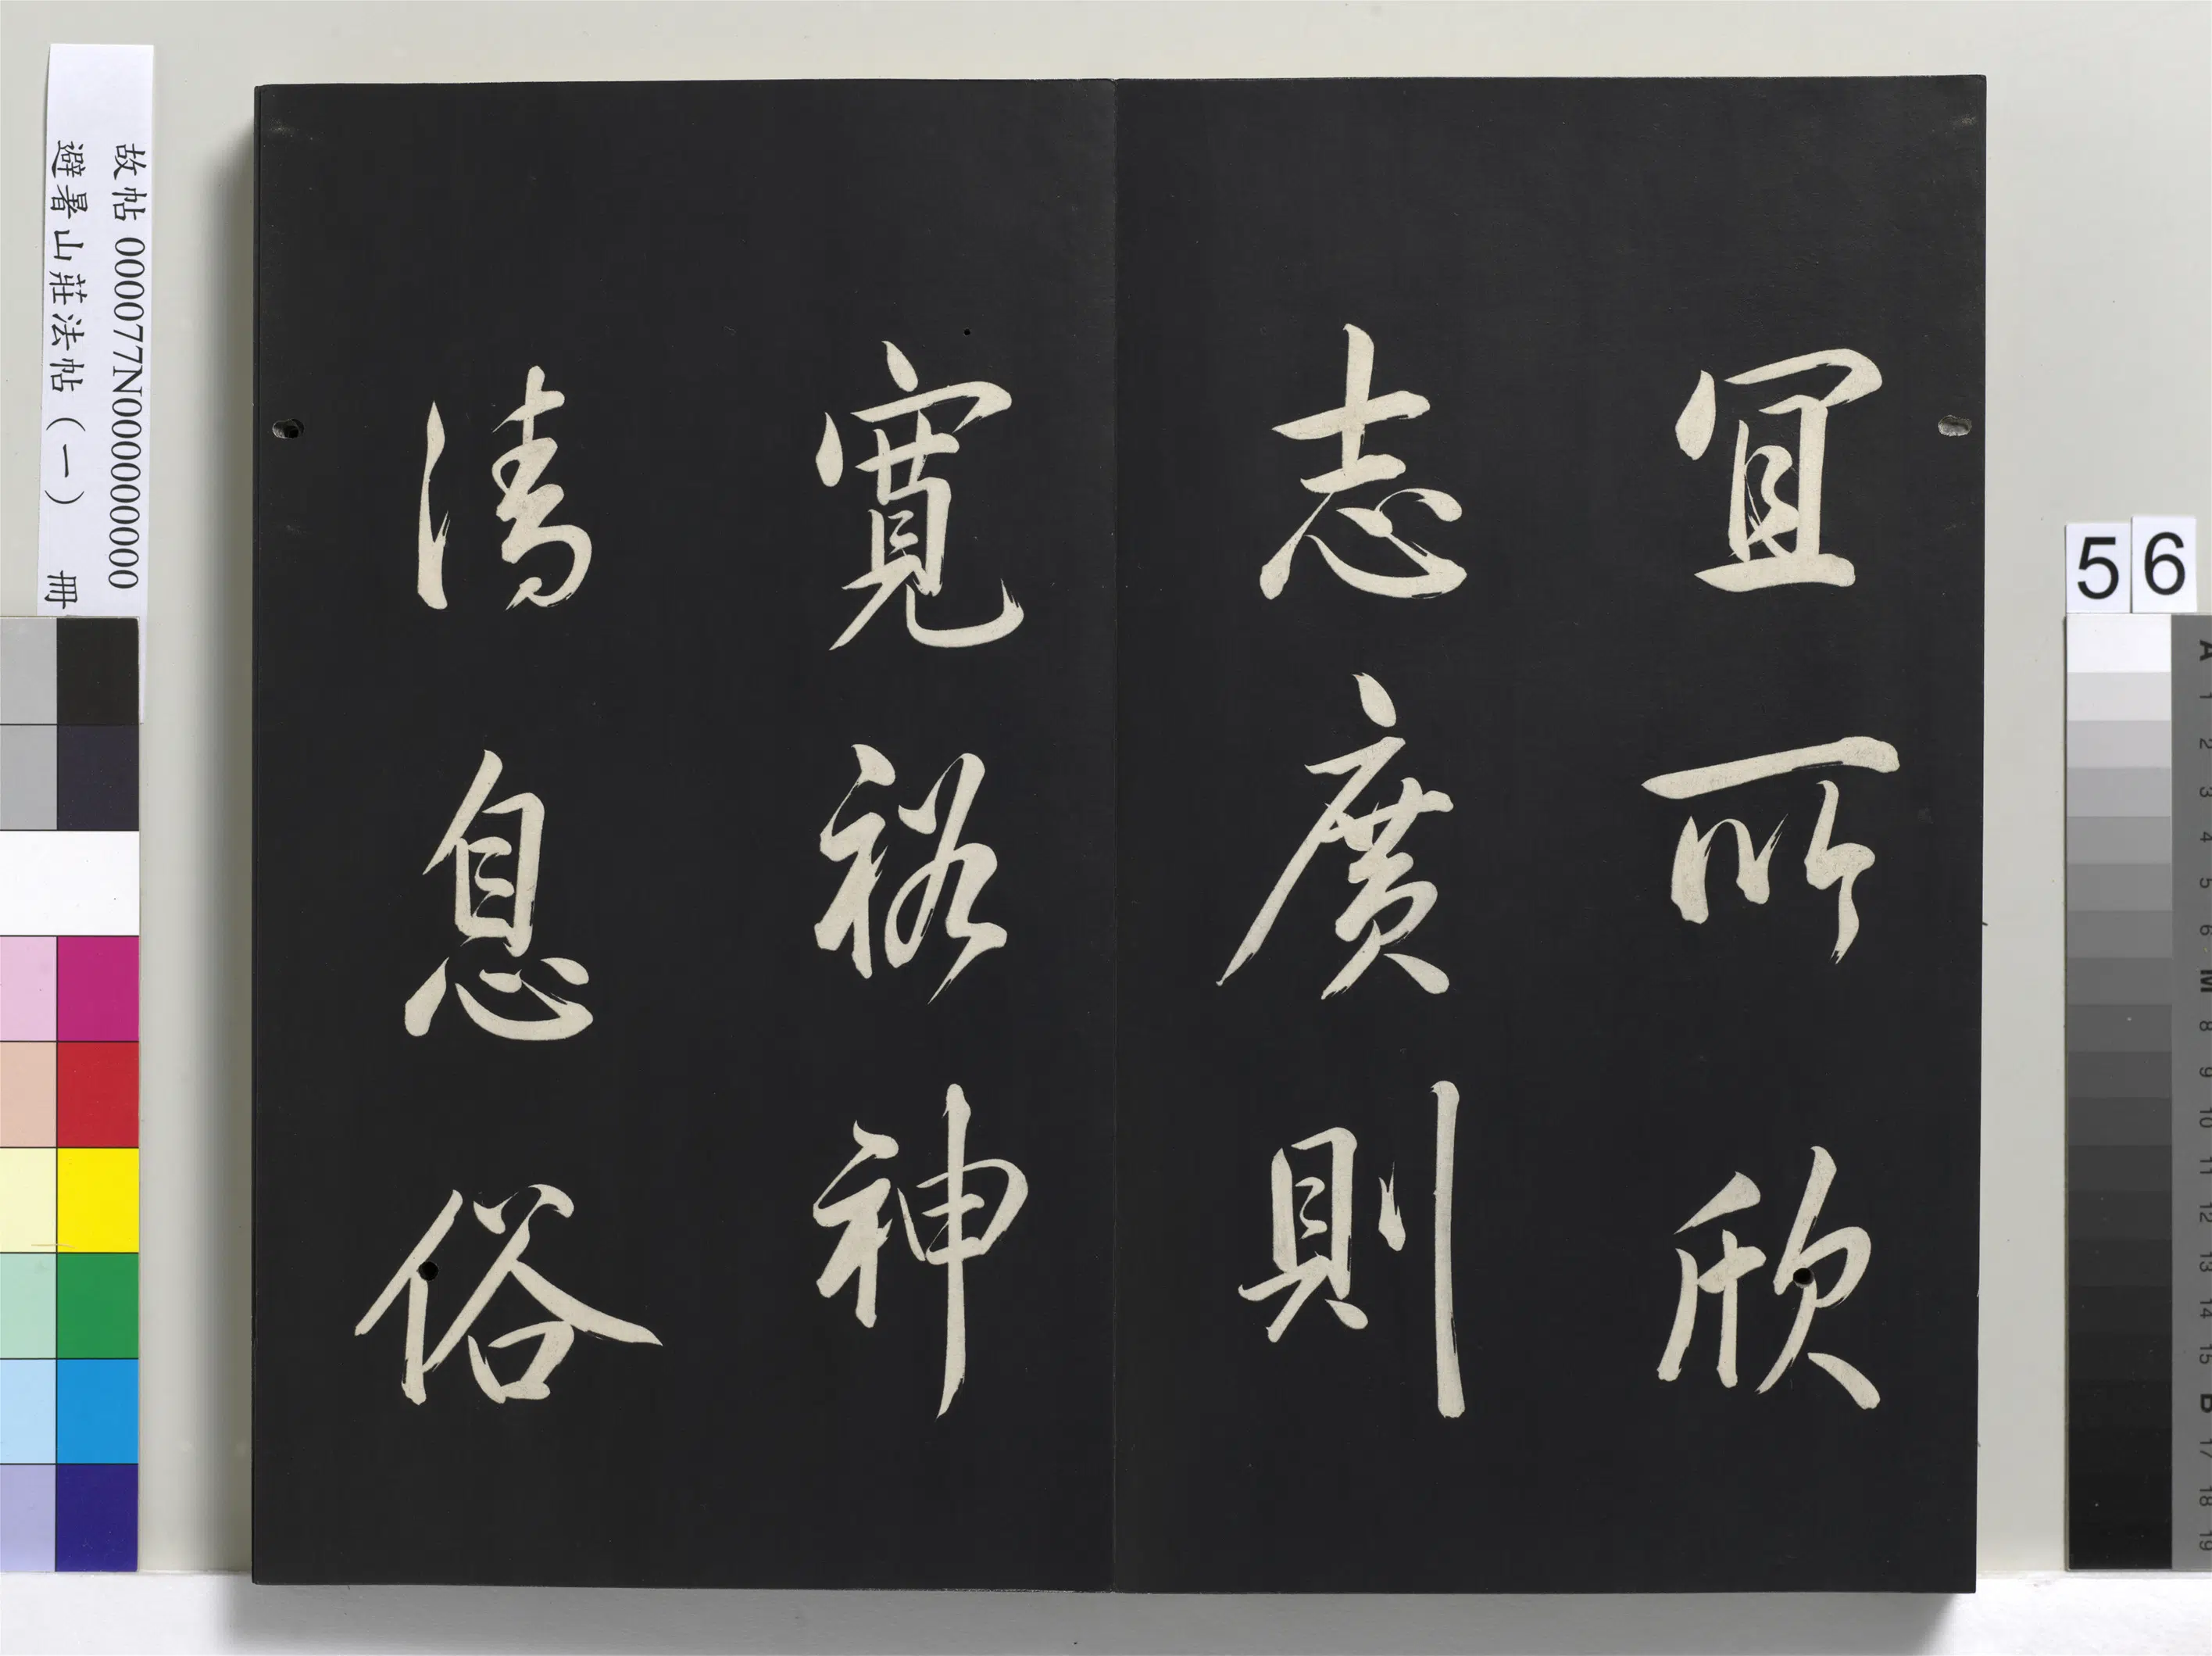 宜所欣
志廣則
寬裕神
清息俗
故帖 000077N000000000
避暑山莊法帖（一） 冊
56
A 1 2 3 4 5 6 M 8 9 10 11 12 13 14 15 B 17 18 19